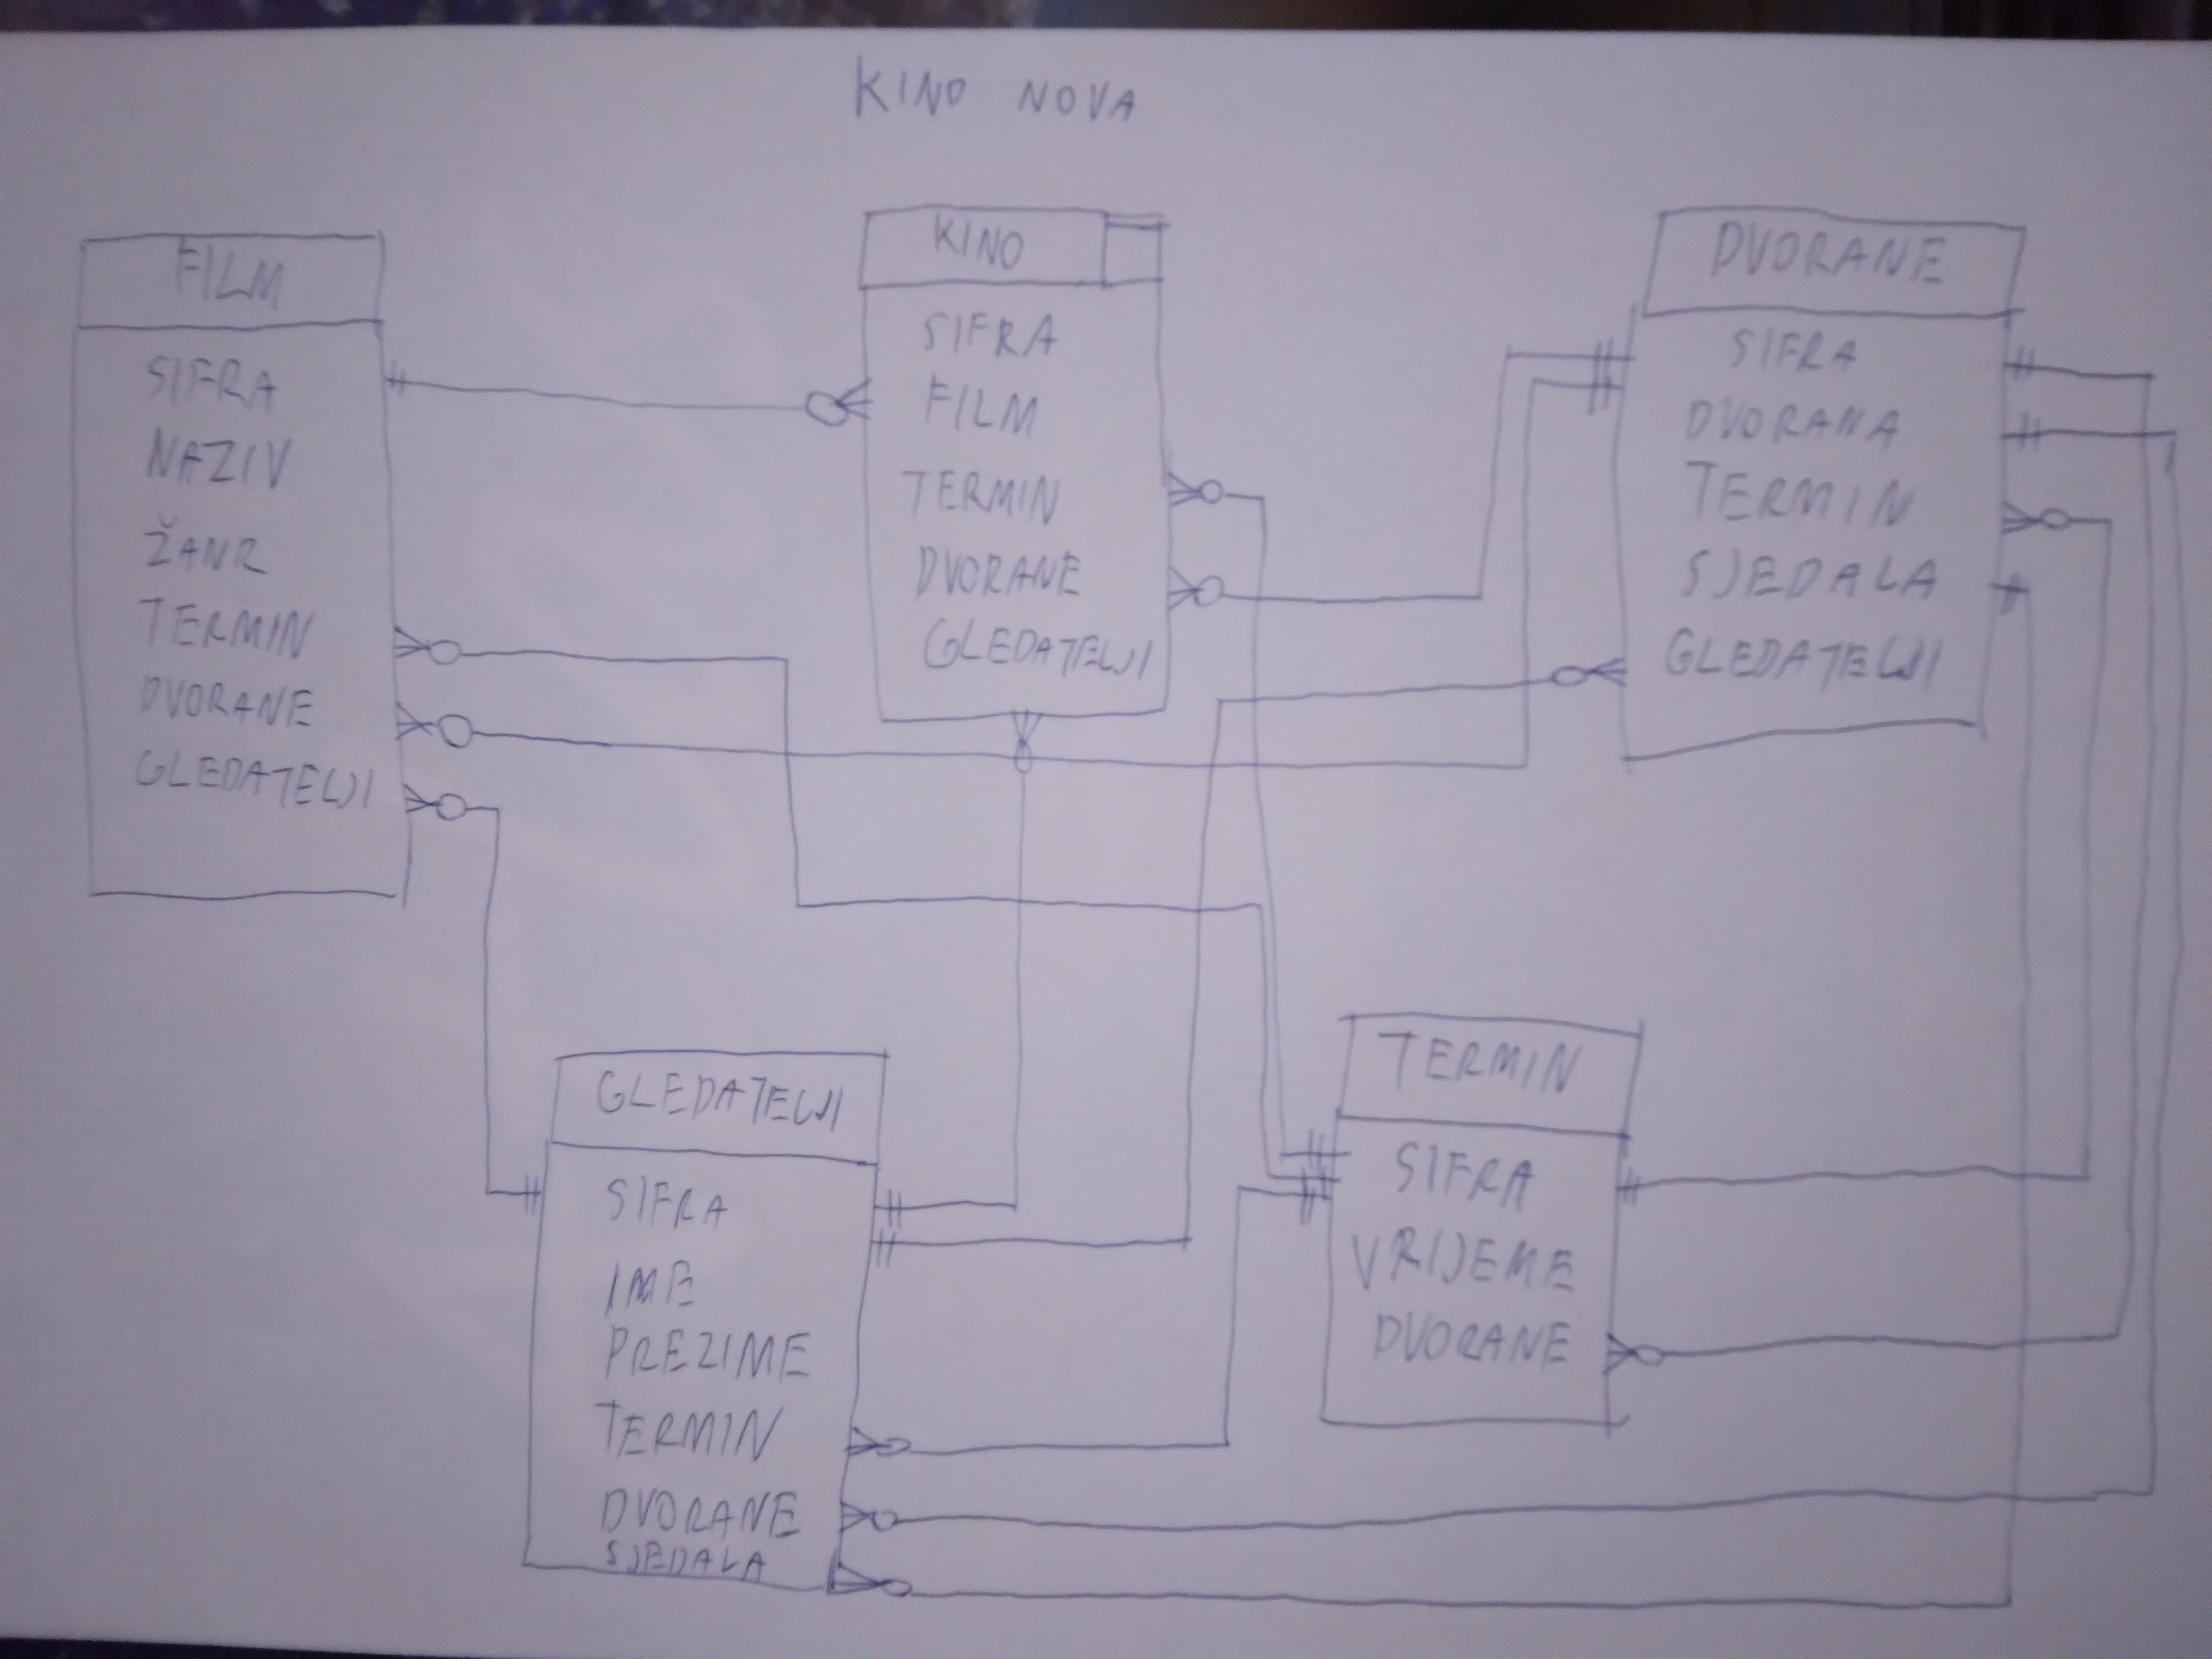 KINO NOVA
FILM
SIFRA
NAZIV
ŽANR
TERMIN
DVORANE
GLEDATELJI
KINO
SIFRA
FILM
TERMIN
DVORANE
GLEDATELJI
DVORANE
SIFRA
DVORANA
TERMIN
SJEDALA
GLEDATELJI
GLEDATELJI
SIFRA
IME
PREZIME
TERMIN
DVORANE
SJEDALA
TERMIN
SIFRA
VRIJEME
DVORANE